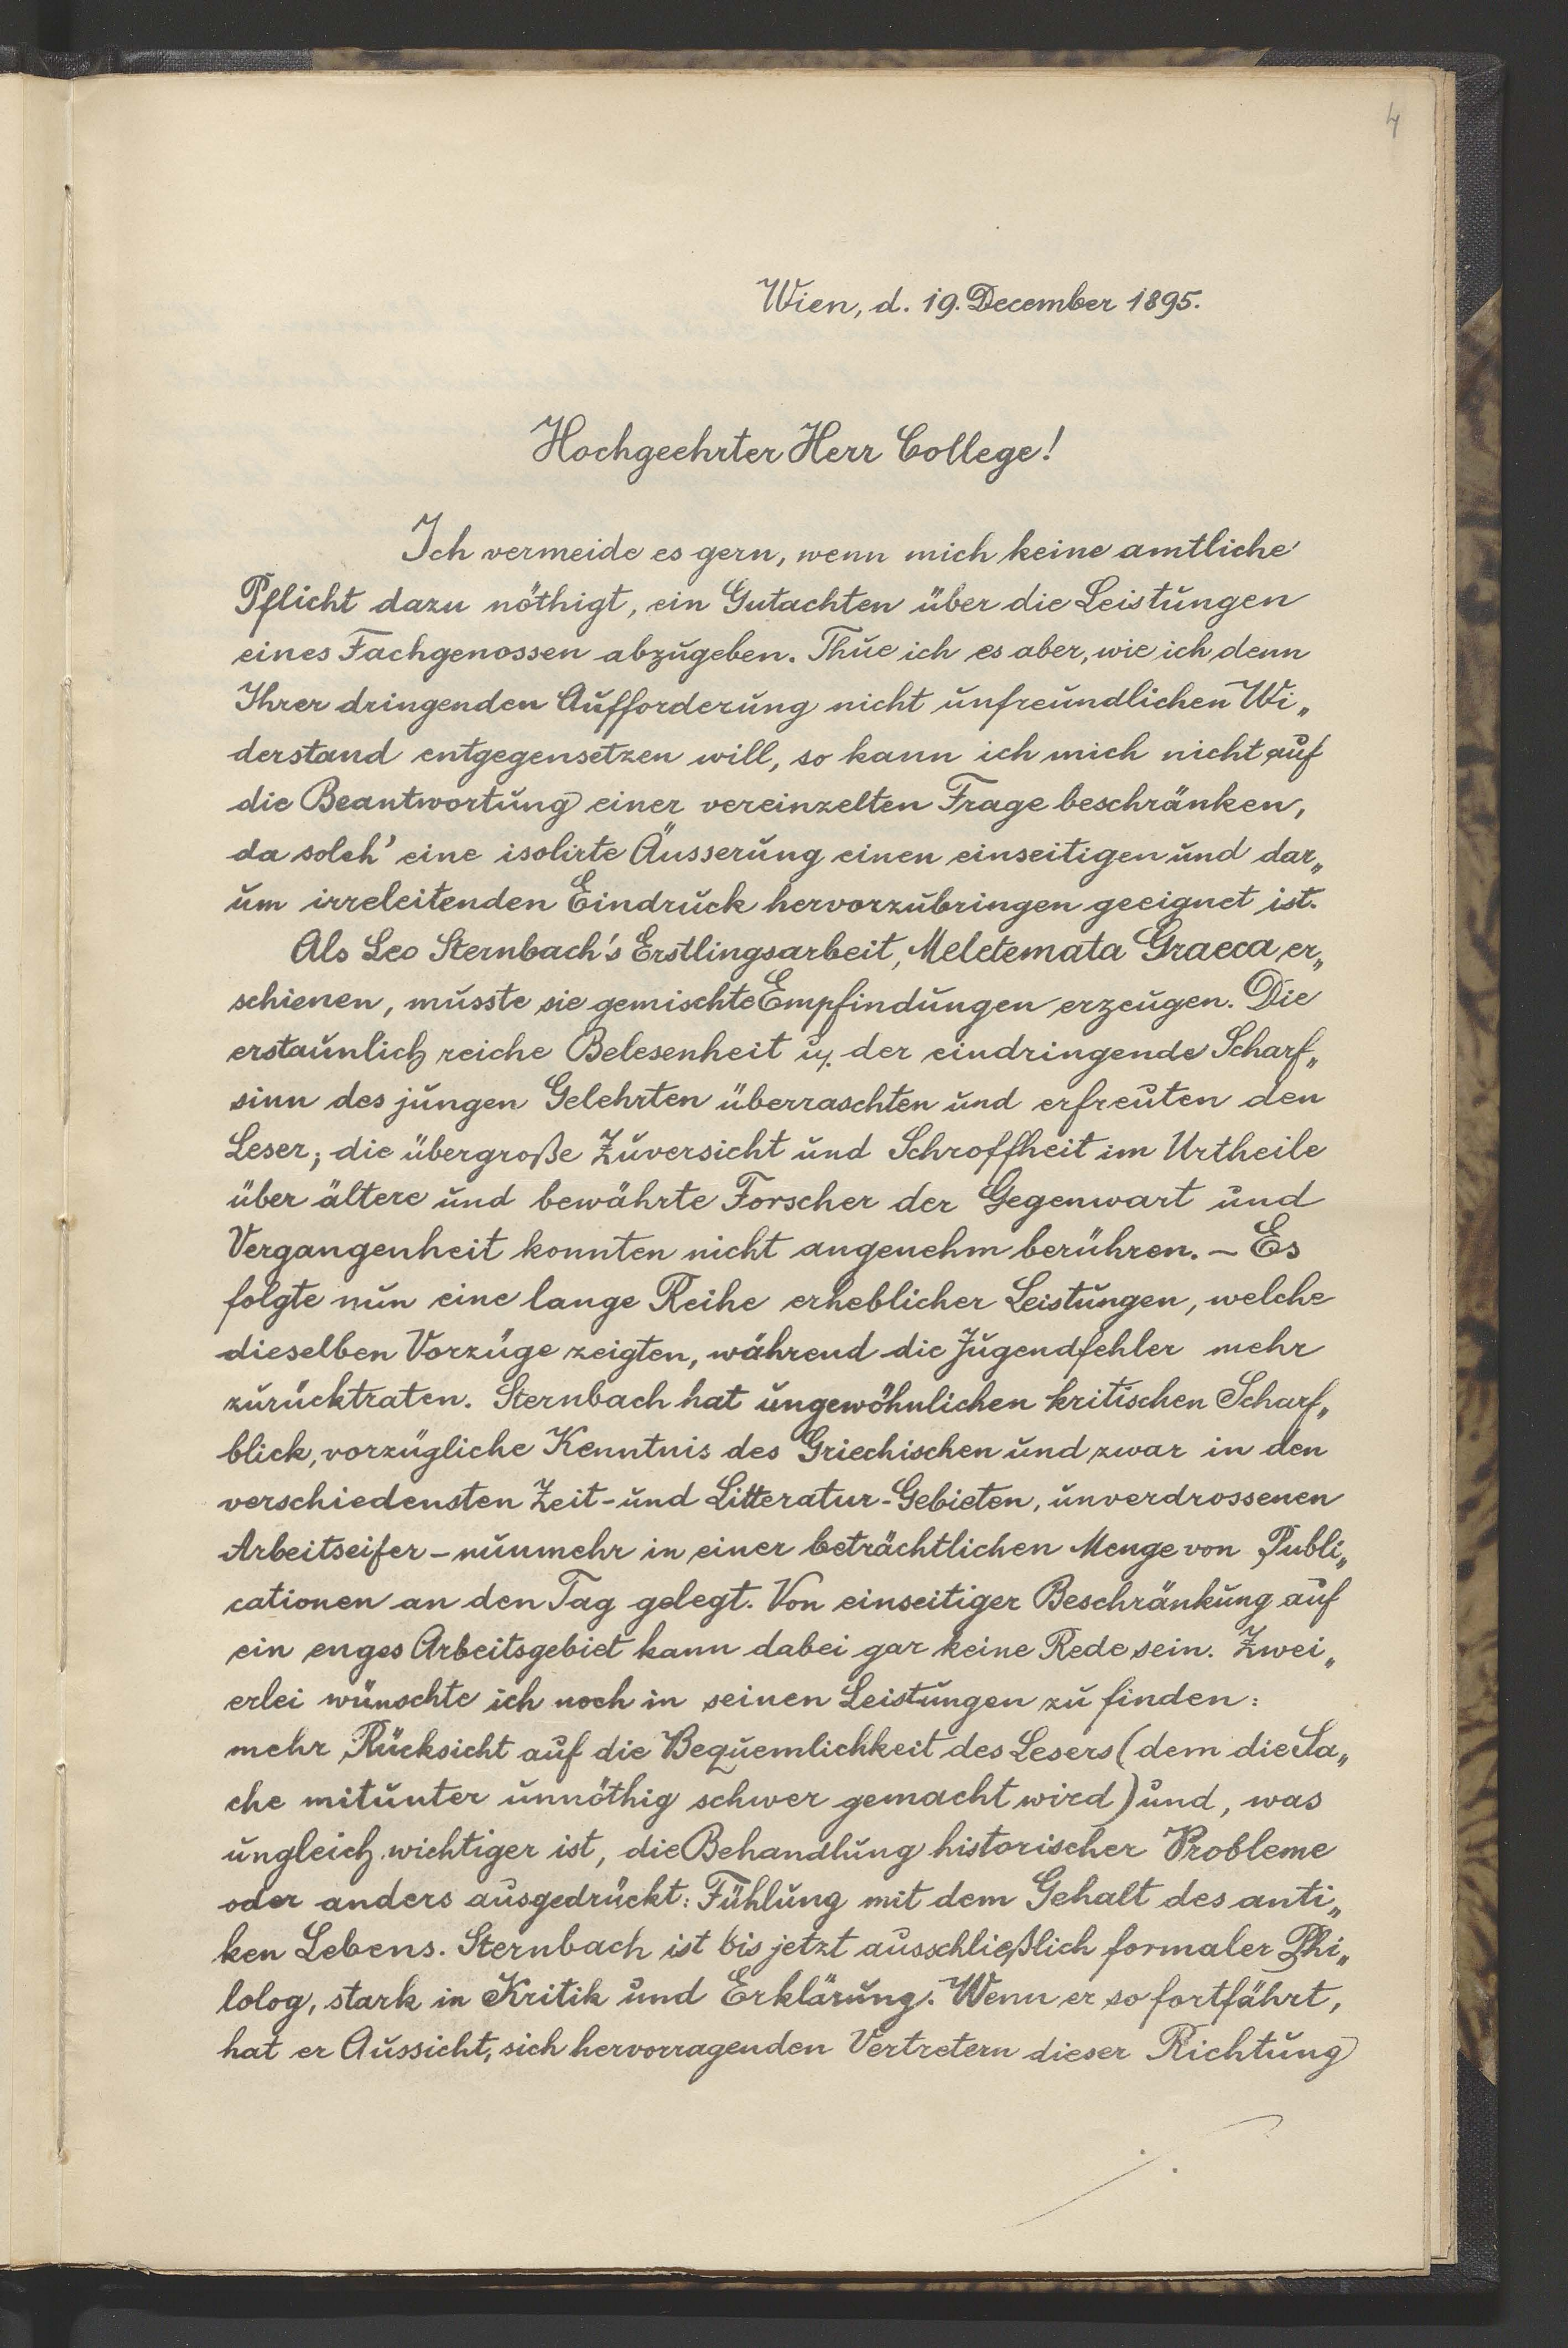 4
Wien, d. 19. December 1895.
Hochgeehrter Herr College!
Ich vermeide es gern, wenn mich keine amtliche
Pflicht dazu nöthigt, ein Gutachten über die Leistungen
eines Fachgenossen abzugeben. Thue ich es aber, wie ich denn
Ihrer dringenden Aufforderung nicht unfreundlichen Wi„
derstand entgegensetzen will, so kann ich mich nicht auf
die Beantwortung einer vereinzelten Frage beschränken,
da solch' eine isolirte Äusserung einen einseitigen und dar„
um irreleitenden Eindruck hervorzubringen geeignet ist.
Als Leo Sternbach's Erstlingsarbeit, Meletemata Graeca er„
schienen, musste sie gemischte Empfindungen erzeugen. Die
erstaunlich reiche Belesenheit u. der eindringende Scharf„
sinn des jungen Gelehrten überraschten und erfreuten den
Leser; die übergroße Zuversicht und Schroffheit im Urtheile
über ältere und bewährte Forscher der Gegenwart und
Vergangenheit konnten nicht angenehm berühren. – Es
folgte nun eine lange Reihe erheblicher Leistungen, welche
dieselben Vorzüge zeigten, während die Jugendfehler mehr
zurücktraten. Sternbach hat ungewöhnlichen kritischen Scharf„
blick, vorzügliche Kenntnis des Griechischen und zwar in den
verschiedensten Zeit- und Litteratur-Gebieten, unverdrossenen
Arbeitseifer – nunmehr in einer beträchtlichen Menge von Publi„
cationen an den Tag gelegt. Von einseitiger Beschränkung auf
ein enges Arbeitsgebiet kann dabei gar keine Rede sein. Zwei„
erlei wünschte ich noch in seinen Leistungen zu finden:
mehr Rücksicht auf die Bequemlichkeit des Lesers (dem die Sa„
che mitunter unnöthig schwer gemacht wird) und, was
ungleich wichtiger ist, die Behandlung historischer Probleme
oder anders ausgedrückt: Fühlung mit dem Gehalt des anti„
ken Lebens. Sternbach ist bis jetzt ausschließlich formaler Phi„
lolog, stark in Kritik und Erklärung. Wenn er so fortfährt,
hat er Aussicht, sich hervorragenden Vertretern dieser Richtung
./.